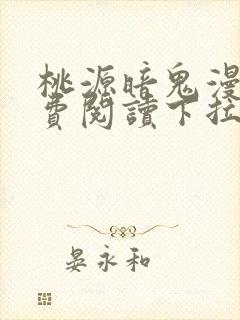 桃源暗鬼漫
費閱讀下拉
晏永和